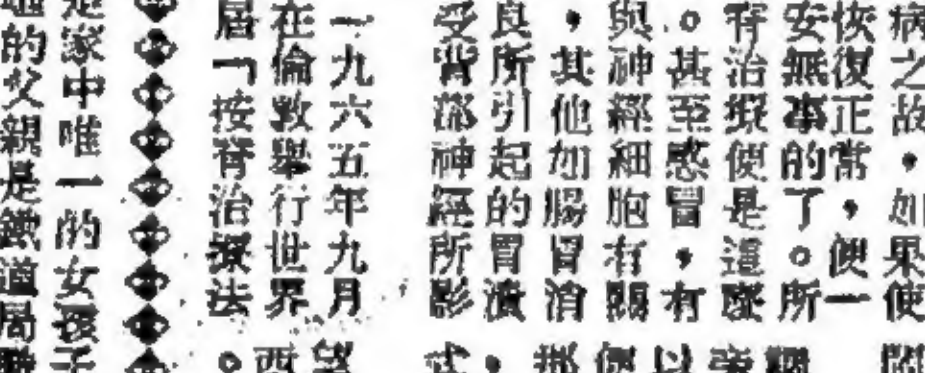 病之故，如果使
恢復正常，便一
安無事的了。所
脊治療便是這麼
。甚至感冒，有
與神經細胞有關
，其他如腸胃消
良所引起的胃潰
受背部神經所影
一九六五年九月
在倫敦舉行世界
居「按脊治療法
是家中唯一的女孩子
的父親是鐵道局